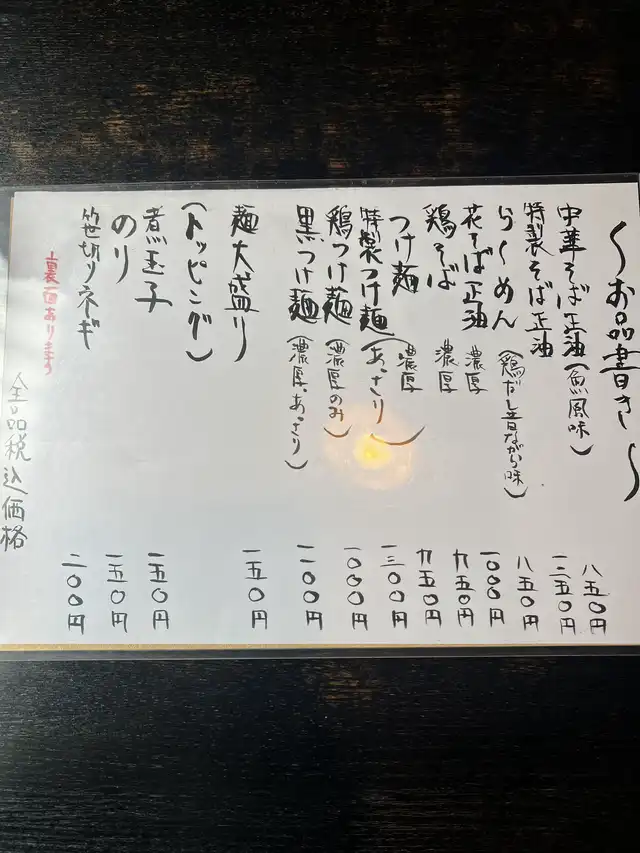 〜お品書き〜
中華そば正油(魚風味) 八五〇円
特製そば正油 一二五〇円
らーめん(鶏だし昔ながら味) 八五〇円
花そば正油 濃厚 一〇〇〇円
鶏そば 濃厚 九五〇円
つけ麺(濃厚 あっさり) 九五〇円
特製つけ麺 一三〇〇円
鶏つけ麺(濃厚のみ) 一〇〇〇円
黒つけ麺(濃厚、あっさり) 一一〇〇円
麺大盛り 一五〇円
(トッピング)
煮玉子 一五〇円
のり 一五〇円
笹切りネギ 二〇〇円
裏面あります
全品税込価格